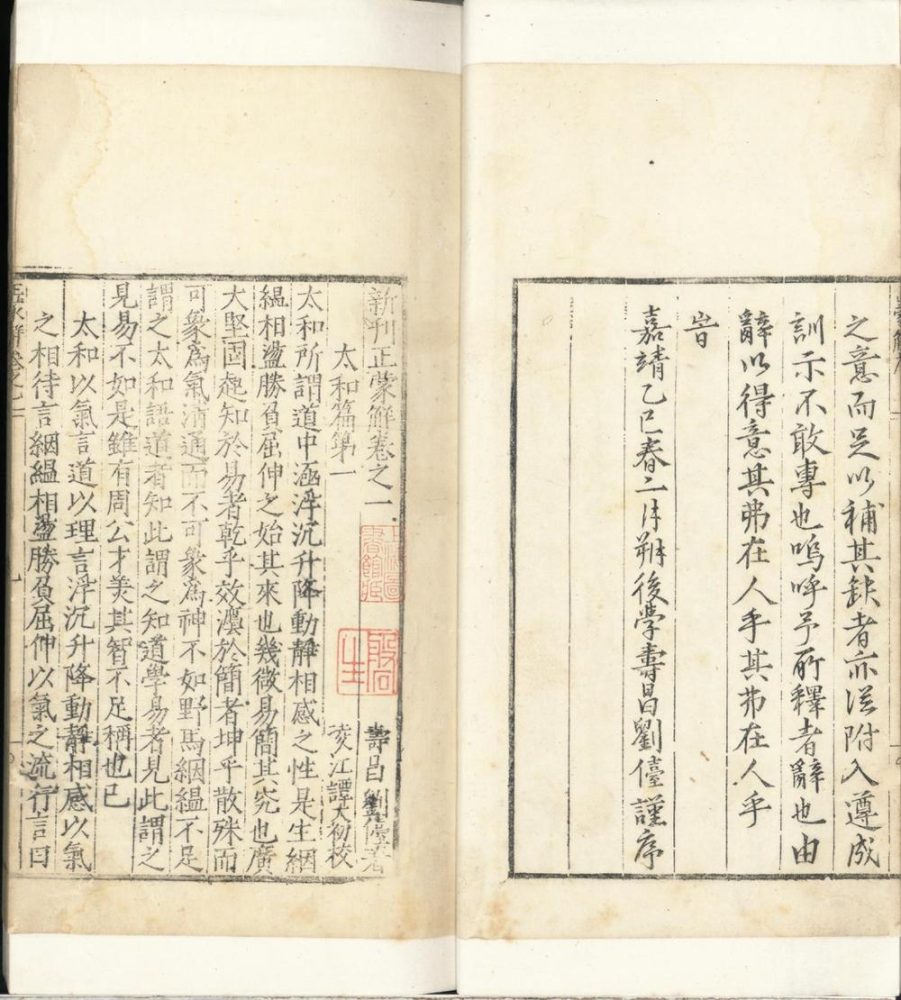 之意而足以補其缺者亦從附入遵成
訓示不敢專也嗚呼予所釋者辭也由
辭以得意其弗在人乎其弗在人乎
旹
嘉靖乙巳春二月朔後學壽昌劉儓謹序
新刊正蒙解卷之一
壽昌 劉儓著
太和篇第一
婺江譚大初校
太和所謂道中涵浮沉升降動靜相感之性是生絪
緼相盪勝負屈伸之始其來也幾微易簡其究也廣
大堅固起知於易者乾乎效灋於簡者坤乎散殊而
可象為氣清通而不可象為神不如野馬絪緼不足
謂之太和語道者知此謂之知道學易者見此謂之
見易不如是雖有周公才美其智不足稱也已
太和以氣言道以理言浮沉升降動靜相感以氣
之相待言絪緼相盪勝負屈伸以氣之流行言曰